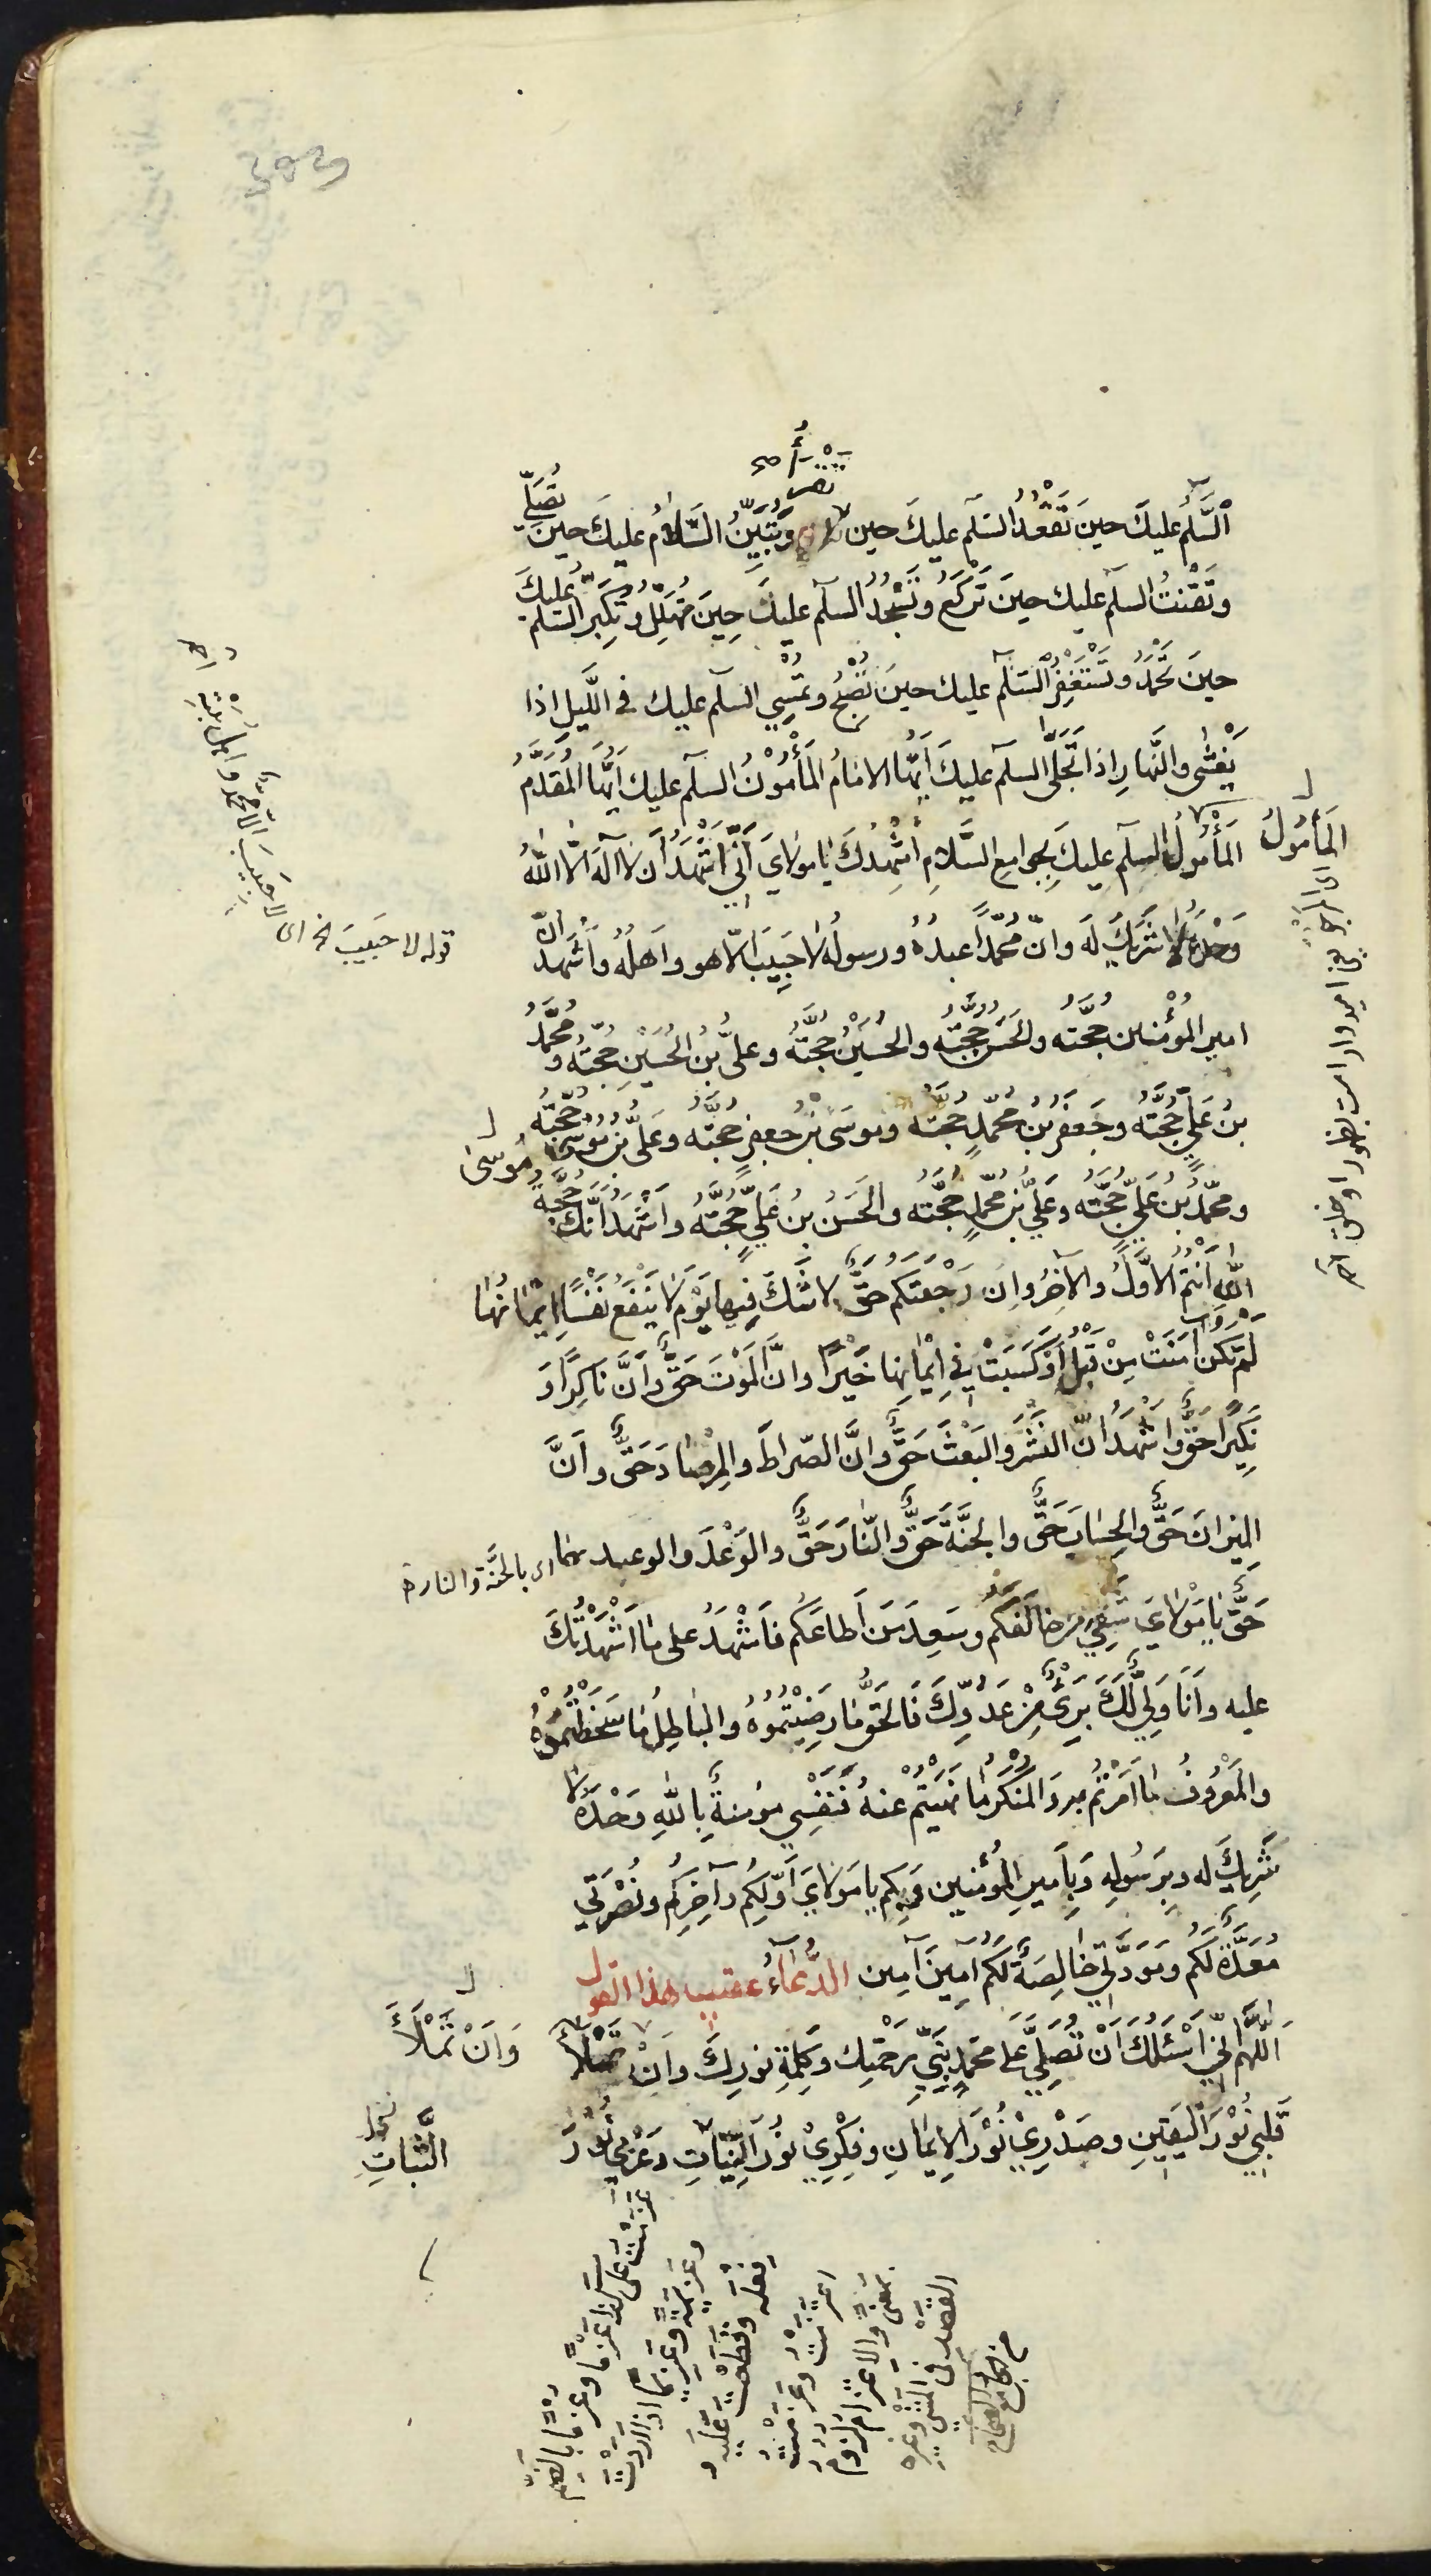 تَقْرَأُ صح
اَلسَّلَمُ عليكَ حينَ تَقْعُدُ السَلَم عليكَ حين وَتُبَيِّنُ السَّلامُ عليكَ حينَ تُصَلّي
وتَقْنتُ السلم عليك حينَ تَركَعُ وتَسْجُدُ السلَم عليكَ حِينَ تُهَلِّلُ وتُكَبِّرُ السَلَم عليكَ
حينَ تَحْمَدُ وتَسْتَغْفِرُ السَلَم عليك حينَ تُصْبِحُ وتُمْسِي السلَم عليك في اللَّيلِ اذا
يَغْشى والنَّهارِ اذا تَجَلّى السلَم عليكَ اَيُّها الامامُ المَأْمُونُ السلَم عليك اَيُّها المُقَدَّمُ
المَأْمُولُ السلَم عليكَ بِجوامع السَّلامِ اُشْهِدُكَ يا مولايَ اَنّي اَشْهَدُ اَن لا اله الّا اللّٰهُ
المَأمُولُ
وَحْدَهُ لا شَريكَ له وانّ محمّداً عبدُهُ ورسولُه لا حَبيبَ الّا هو واَهلُه واَشْهَدُ انّ
قوله لا حبيبَ الخ اى لا حبيبَ الّا محمّد واهل بيته
امير المُؤمنين حُجَّتُه والحَسَن حُجَّتُه والحُسَيْنُ حُجَّتُهُ وعلىُّ بنُ الحُسَيْنِ حُجَّتُهُ ومُحمَّدُ
بنُ عَلِيٍّ حُجَّتُهُ وجَعفَرُ بْنُ مُحمّدٍ حُجَّتُه ومُوسَى بْنُ جعفرٍ حُجَّتُه وعَلىُّ بنُ مُوسى حُجَّتُه
مُوسى
ومحمّدُ بنُ عَلِيٍّ حُجَّتُه وعَلِيُّ بْنُ محمّدٍ حُجَّتُه والحَسَنُ بنُ عَلِيٍّ حُجَّتُهُ واَشْهَدُ انَّكَ حُجَّةُ
اللّٰهِ اَنْتُم الاوَّلُ والآخِرُ وانَ رَجْعَتَكم حَقٌّ لا شَكَّ فيها يَوْمَ لا يَنْفَعُ نَفْسًا ايمانُها
لَمْ تَكُنْ آمَنَتْ مِنْ قَبْلُ اَوْ كَسَبَتْ فِي اِيْمانِها خَيْرًا وانَّ المَوْتَ حَقٌّ وَاَنَّ نَاكِرًا وَ
نَكِيرًا حَقٌّ واَشْهَدُ انّ النَشْرَ والبَعْثَ حَقٌّ وانَّ الصّراطَ والمِرْصادَ حَقٌّ واَنَّ
الميزانَ حَقٌّ والحِسابَ حَقٌّ والجنَّةَ حَقٌّ والنّارَ حَقٌّ والوَعْدَ والوعيد بهما اى بالجَنَّة والنار
حَقٌّ يا مَوْلايَ شَقِيَ مَن خالَفَكُم وسَعِدَ مَن اَطاعَكُم فاشْهَدُ على ما اَشْهَدْتُكَ
عليه واَنا وَلِيٌّ لَكَ بَرِيٌ مِنْ عَدُوِّكَ فَالحَقُّ ما رَضِيْتُمُوهُ والباطِلُ ما سَخَطْتُمُوهُ
والمَعْرُوفُ ما اَمَرْتُم به والمُنْكَرُ ما نَهَيْتُم عنهُ فَنَفْسِي مؤمنةٌ بِاللّٰهِ وَحْدَهُ لا
شَرِيكَ له وبِرَسُولِهِ وَبِاَميرِ المُؤمنين وبكم يا مَولايَ اَوّلِكُم وآخِرِكُم ونُصْرَتي
مُعَدَّةٌ لَكُم ومَوَدَّتي خالِصَةٌ لَكُم آمينَ آمين الدُّعاءُ عقيب هذا القول
اَللّهُمَّ اِنّي اَسْئَلُكَ اَنْ تُصَلِّيَ عَلى محمّدٍ نَبيِّ رَحْمَتِك وكَلِمَةِ نورِكَ وانْ تَمْلَأَ
وَاَنْ تَمْلَأَ
قَلبي نُوْرَ اليَقينِ وصَدْرِيْ نُوْرَ الايمانِ وفِكْرِيْ نُورَ النِيّاتِ وعَزْمي نُوْرَ
الثَّباتِ
عَزَمْتُ على كذا عَزْمًا وعُزْمًا بالضّم
وعَزيمَةً وعَزيمًا اذا اَرَدْتَ
فِعْلَه وقَطَعْتَ عليه و
اعْتَزَمْتُ وعَزَمْتُ
بمعنىً والاعتزام لزوم
القَصْدِ في المَشْي وغيره